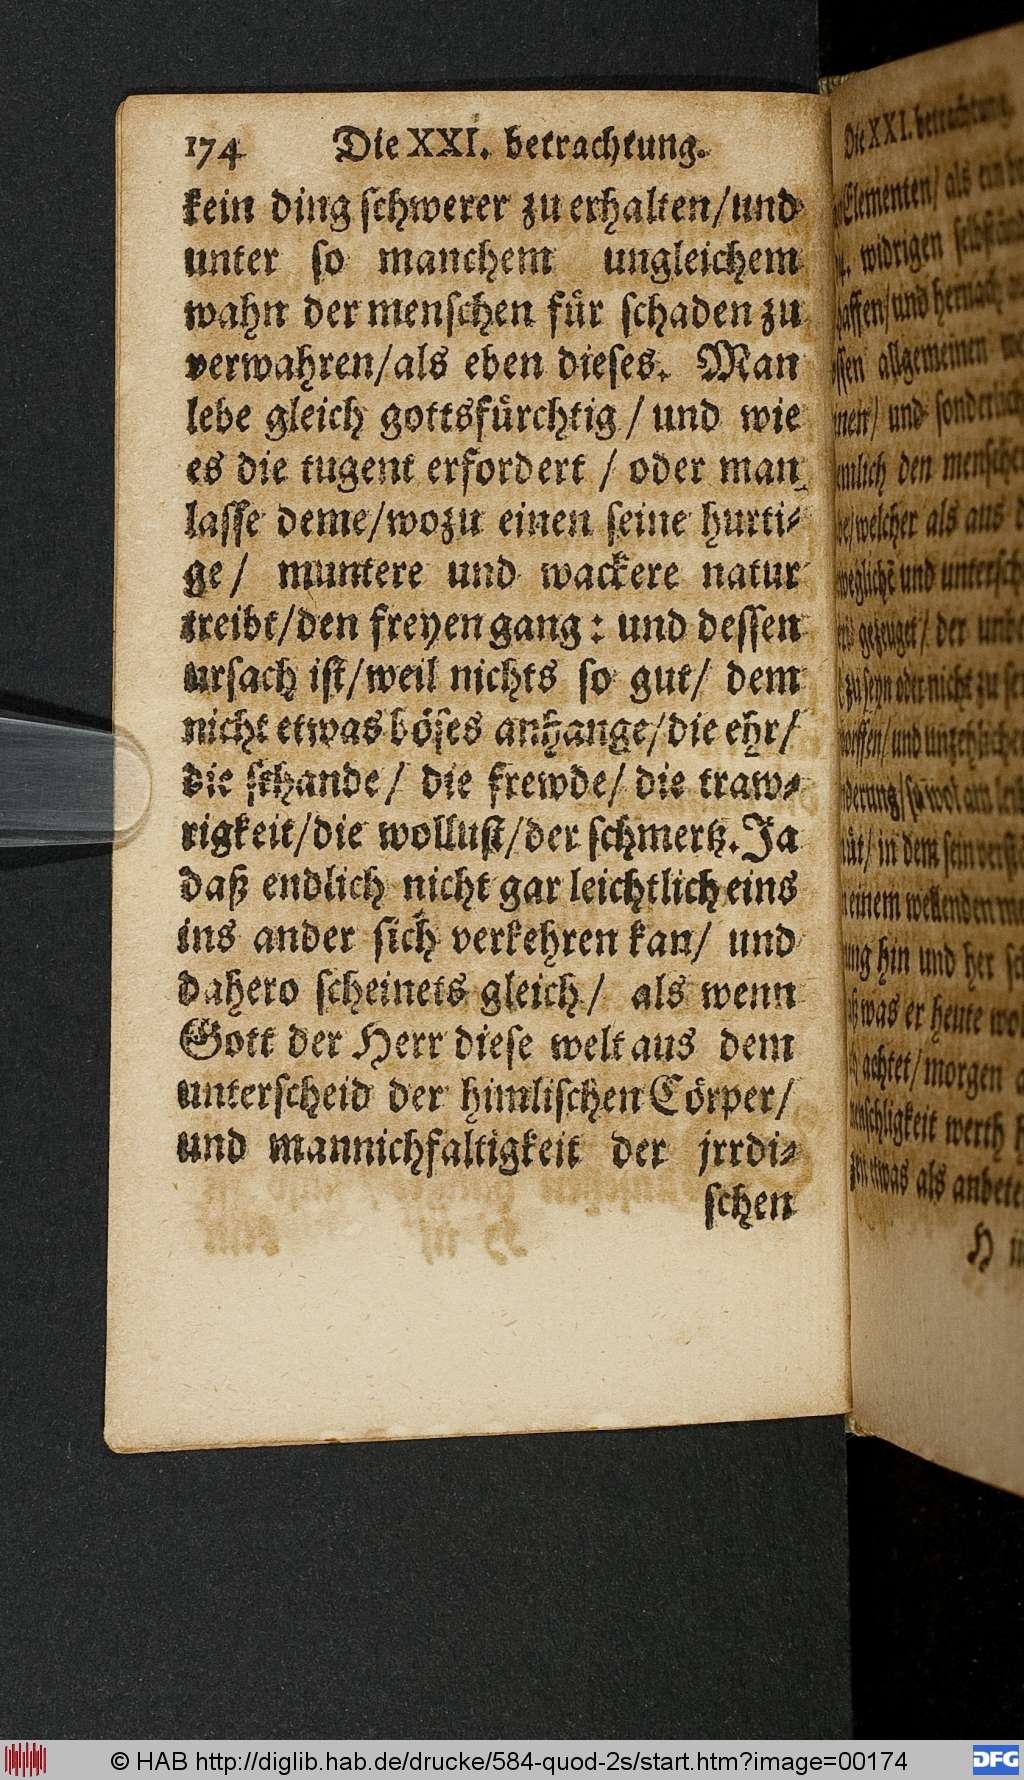 174 Die XXI. betrachtung.
kein ding schwerer zu erhalten/und
unter so manchem ungleichem
wahn der menschen für schaden zu
verwahren/als eben dieses. Man
lebe gleich gottsfürchtig / und wie
es die tugent erfordert / oder man
lasse deme/wozu einen seine hurti⸗
ge/ muntere und wackere natur
treibt/den freyen gang: und dessen
ursach ist/weil nichts so gut/ dem
nicht etwas böses anhange/die ehr/
die schande/ die frewde/ die traw⸗
rigkeit/die wollust/der schmertz. Ja
daß endlich nicht gar leichtlich eins
ins ander sich verkehren kan/ und
dahero scheinets gleich/ als wenn
Gott der Herr diese welt aus dem
unterscheid der himlischen Cörper/
und mannichfaltigkeit der jrrdi⸗
schen
Die XXI. betrachtung.
Elementen/ als ein
widrigen
und hernach
allgemeinen
und sonderlich
den menschen
welcher als aus
und
gezeuget/ der
zu seyn oder nicht zu
und
in dem sein
einem wellenden
hin und her
was er heute
achtet/ morgen
werth
etwas als
H
© HAB http://diglib.hab.de/drucke/584-quod-2s/start.htm?image=00174
DFG